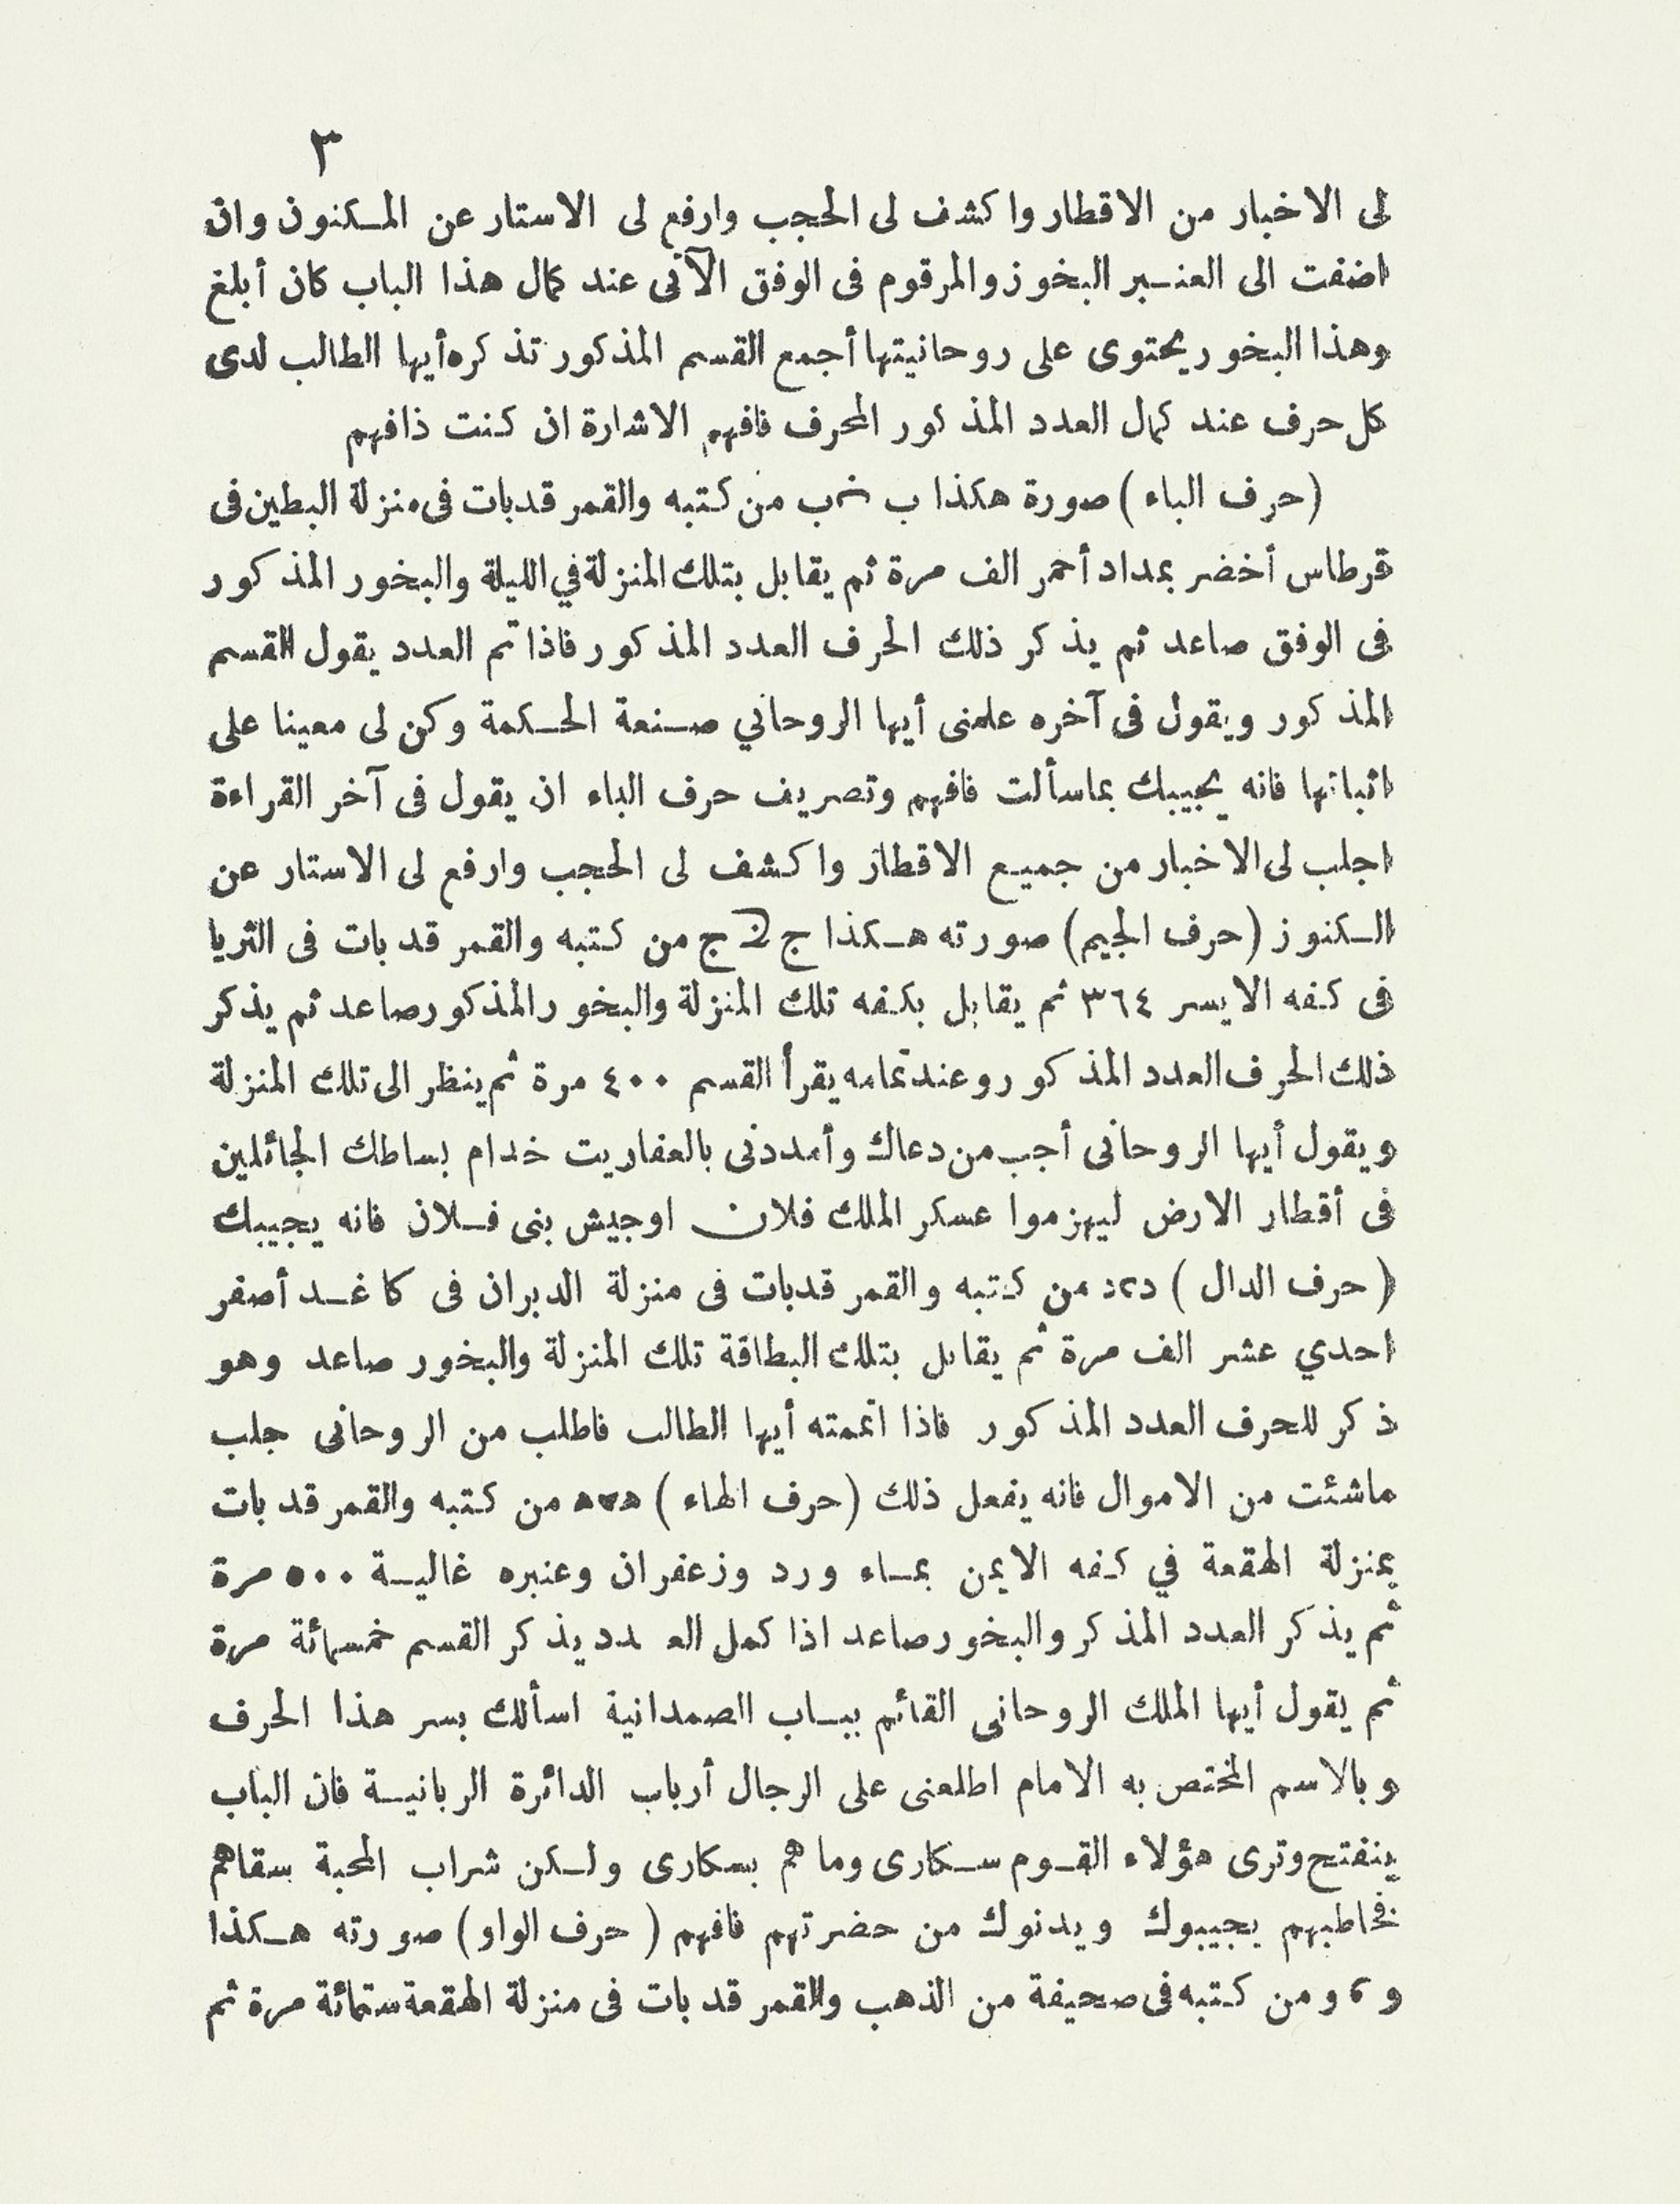 ٣
لى الاخبار من الاقطار واكشف لى الحجب وارفع لى الاستار عن المكنون وان
اضفت الى العنبر البخوز والمرقوم فى الوفق الآتى عند كمال هذا الباب كان أبلغ
وهذا البخور يحتوى على روحانيتها أجمع القسم المذكور تذكره أيها الطالب لدى
كل حرف عند كمال العدد المذكور المحرف فافهم الاشارة ان كنت ذافهم
(حرف الباء) صورة هكذا ب ب من كتبه والقمر قدبات فى منزلة البطين فى
قرطاس أخضر بمداد أحمر الف مرة ثم يقابل بتلك المنزلة في الليلة والبخور المذكور
فى الوفق صاعد ثم يذكر ذلك الحرف العدد المذكور فاذا تم العدد يقول القسم
المذكور ويقول فى آخره علمنى أيها الروحاني صنعة الحكمة وكن لى معينا على
اثباتها فانه يجيبك بماسألت فافهم وتصريف حرف الباء ان يقول فى آخر القراءة
اجلب لى الاخبار من جميع الاقطار واكشف لى الحجب وارفع لى الاستار عن
الكنوز (حرف الجيم) صورته هكذا ج ج من كتبه والقمر قد بات فى الثريا
فى كفه الايسر ٣٦٤ ثم يقابل بكفه تلك المنزلة والبخور المذكور صاعد ثم يذكر
ذلك الحرف العدد المذكور وعند تمامه يقرأ القسم ٤٠٠ مرة ثم ينظر الى تلك المنزلة
ويقول أيها الروحانى أجب من دعاك وأمددنى بالعفاريت خدام بساطك الجائلين
فى أقطار الارض ليهزموا عسكر الملك فلان اوجيش بنى فلان فانه يجيبك
(حرف الدال) د٢د من كتبه والقمر قدبات فى منزلة الدبران فى كاغد أصفر
احدي عشر الف مرة ثم يقابل بتلك البطاقة تلك المنزلة والبخور صاعد وهو
ذكر للحرف العدد المذكور فاذا اتممته أيها الطالب فاطلب من الروحانى جلب
ماشئت من الاموال فانه يفعل ذلك (حرف الهاء) ه٧ه من كتبه والقمر قد بات
بمنزلة الهقعة في كفه الايمن بماء ورد وزعفران وعنبره غالية ٥٠٠ مرة
ثم يذكر العدد المذكر والبخور صاعد اذا كمل العدد يذكر القسم خمسمائة مرة
ثم يقول أيها الملك الروحانى القائم بباب الصمدانية اسألك بسر هذا الحرف
وبالاسم المختص به الامام اطلعنى على الرجال أرباب الدائرة الربانية فان الباب
ينفتح وترى هؤلاء القوم سكارى وما هم بسكارى ولكن شراب المحبة سقاهم
فخاطبهم يجيبوك ويدنوك من حضرتهم فافهم (حرف الواو) صورته هكذا
و ٢ و من كتبه فى صحيفة من الذهب والقمر قد بات فى منزلة الهقعة ستمائة مرة ثم